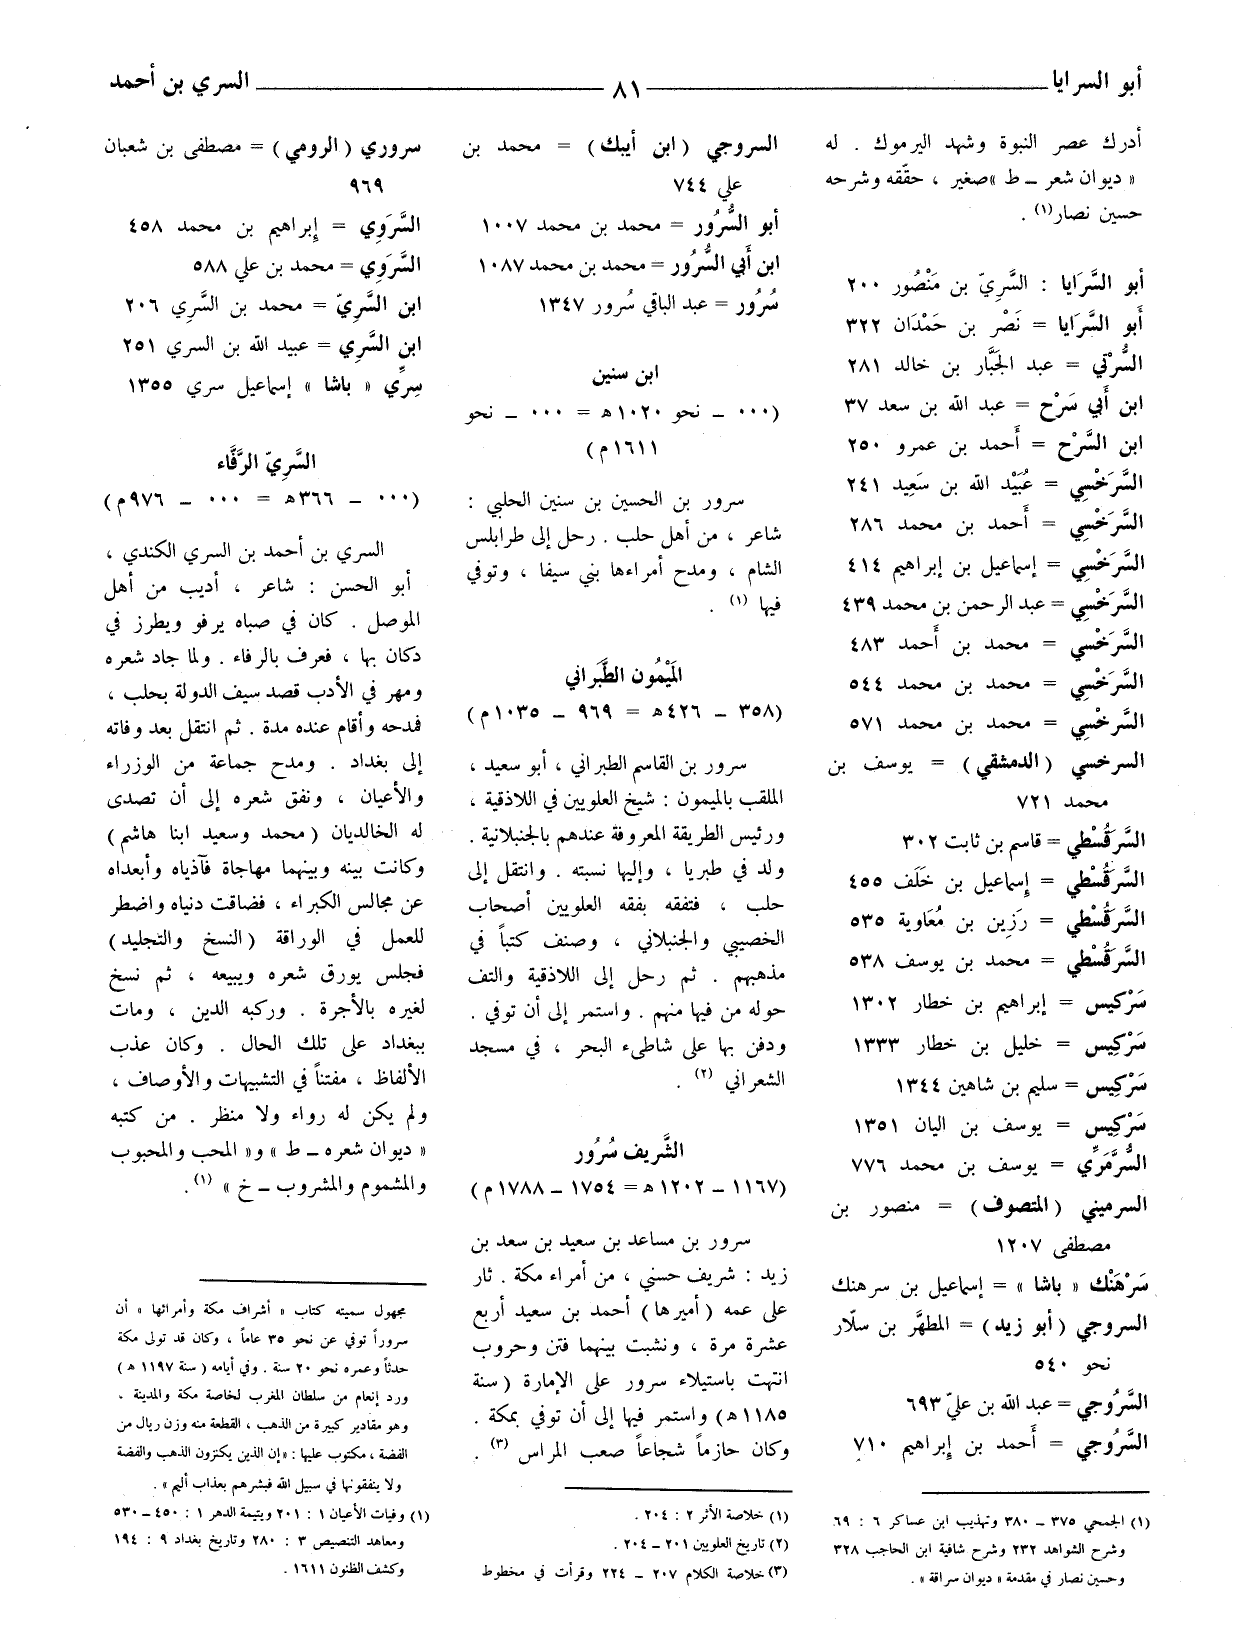 أبو السرايا ٨١ السري بن أحمد
أدرك عصر النبوة وشهد اليرموك . له
« ديوان شعر ـ ط » صغير ، حقّقه وشرحه
حسين نصار(١) .
أبو السَّرَايا : السَّريّ بن مَنْصُور ٢٠٠
أَبو السَّرَايا = نَصْر بن حَمْدَان ٣٢٢
السُّرْتي = عبد الجَبَّار بن خالد ٢٨١
ابن أَبي سَرْح = عبد الله بن سعد ٣٧
ابن السَّرْح = أَحمد بن عمرو ٢٥٠
السَّرَخْسِي = عُبَيْد الله بن سَعِيد ٢٤١
السَّرَخْسِي = أَحمد بن محمد ٢٨٦
السَّرَخْسِي = إسماعيل بن إبراهيم ٤١٤
السَّرَخْسِي = عبد الرحمن بن محمد ٤٣٩
السَّرَخْسِي = محمد بن أَحمد ٤٨٣
السَّرَخْسِي = محمد بن محمد ٥٤٤
السَّرَخْسِي = محمد بن محمد ٥٧١
السرخسي (الدمشقي) = يوسف بن
محمد ٧٢١
السَّرَقُسْطي = قاسم بن ثابت ٣٠٢
السَّرَقُسْطي = إسماعيل بن خَلَف ٤٥٥
السَّرَقُسْطي = رَزِين بن مُعَاوية ٥٣٥
السَّرَقُسْطي = محمد بن يوسف ٥٣٨
سَرْكِيس = إبراهيم بن خطار ١٣٠٢
سَرْكِيس = خليل بن خطار ١٣٣٣
سَرْكِيس = سليم بن شاهين ١٣٤٤
سَرْكِيس = يوسف بن اليان ١٣٥١
السُّرَّمَرِّي = يوسف بن محمد ٧٧٦
السرميني (المتصوف) = منصور بن
مصطفى ١٢٠٧
سَرْهَنْك « باشا » = إسماعيل بن سرهنك
السروجي (أبو زيد) = المطهَّر بن سلّار
نحو ٥٤٠
السَّرُوجي = عبد الله بن عليّ ٦٩٣
السَّرُوجي = أَحمد بن إبراهيم ٧١٠
(١) الجمحي ٣٧٥ ـ ٣٨٠ وتهذيب ابن عساكر ٦ : ٦٩
وشرح الشواهد ٢٣٢ وشرح شافية ابن الحاجب ٣٢٨
وحسين نصار في مقدمة « ديوان سراقة » .
السروجي (ابن أيبك) = محمد بن
علي ٧٤٤
أبو السُّرُور = محمد بن محمد ١٠٠٧
ابن أَبي السُّرُور = محمد بن محمد ١٠٨٧
سُرُور = عبد الباقي سُرور ١٣٤٧
ابن سنين
(٠٠٠ ـ نحو ١٠٢٠ هـ = ٠٠٠ ـ نحو
١٦١١ م)
سرور بن الحسين بن سنين الحلبي :
شاعر ، من أهل حلب . رحل إلى طرابلس
الشام ، ومدح أمراءها بني سيفا ، وتوفي
فيها (١) .
المَيْمُون الطَّبَراني
(٣٥٨ ـ ٤٢٦ هـ = ٩٦٩ ـ ١٠٣٥ م)
سرور بن القاسم الطبراني ، أبو سعيد ،
الملقب بالميمون : شيخ العلويين في اللاذقية ،
ورئيس الطريقة المعروفة عندهم بالجنبلانية .
ولد في طبريا ، وإليها نسبته . وانتقل إلى
حلب ، فتفقه بفقه العلويين أصحاب
الخصيبي والجنبلاني ، وصنف كتباً في
مذهبهم . ثم رحل إلى اللاذقية والتف
حوله من فيها منهم . واستمر إلى أن توفي .
ودفن بها على شاطىء البحر ، في مسجد
الشعراني (٢) .
الشَّريف سُرُور
(١١٦٧ ـ ١٢٠٢ هـ = ١٧٥٤ ـ ١٧٨٨ م)
سرور بن مساعد بن سعيد بن سعد بن
زيد : شريف حسني ، من أمراء مكة . ثار
على عمه (أميرها) أحمد بن سعيد أربع
عشرة مرة ، ونشبت بينهما فتن وحروب
انتهت باستيلاء سرور على الإمارة (سنة
١١٨٥ هـ) واستمر فيها إلى أن توفي بمكة .
وكان حازماً شجاعاً صعب المراس (٣) .
(١) خلاصة الأثر ٢ : ٢٠٤ .
(٢) تاريخ العلويين ٢٠١ ـ ٢٠٤ .
(٣) خلاصة الكلام ٢٠٧ ـ ٢٢٤ وقرأت في مخطوط
سروري (الرومي) = مصطفى بن شعبان
٩٦٩
السَّرَوِي = إبراهيم بن محمد ٤٥٨
السَّرَوِي = محمد بن علي ٥٨٨
ابن السَّرِيّ = محمد بن السَّرِي ٢٠٦
ابن السَّرِي = عبيد الله بن السري ٢٥١
سِرِّي « باشا » إسماعيل سري ١٣٥٥
السَّرِيّ الرَّفَّاء
(٠٠٠ ـ ٣٦٦ هـ = ٠٠٠ ـ ٩٧٦ م)
السري بن أحمد بن السري الكندي ،
أبو الحسن : شاعر ، أديب من أهل
الموصل . كان في صباه يرفو ويطرز في
دكان بها ، فعرف بالرفاء . ولما جاد شعره
ومهر في الأدب قصد سيف الدولة بحلب ،
فمدحه وأقام عنده مدة . ثم انتقل بعد وفاته
إلى بغداد . ومدح جماعة من الوزراء
والأعيان ، ونفق شعره إلى أن تصدى
له الخالديان (محمد وسعيد ابنا هاشم)
وكانت بينه وبينهما مهاجاة فآذياه وأبعداه
عن مجالس الكبراء ، فضاقت دنياه واضطر
للعمل في الوراقة (النسخ والتجليد)
فجلس يورق شعره ويبيعه ، ثم نسخ
لغيره بالأجرة . وركبه الدين ، ومات
ببغداد على تلك الحال . وكان عذب
الألفاظ ، مفتناً في التشبيهات والأوصاف ،
ولم يكن له رواء ولا منظر . من كتبه
« ديوان شعره ـ ط » و« المحب والمحبوب
والمشموم والمشروب ـ خ » (١) .
مجهول سميته كتاب « أشراف مكة وأمرائها » أن
سروراً توفي عن نحو ٣٥ عاماً ، وكان قد تولى مكة
حدثاً وعمره نحو ٢٠ سنة . وفي أيامه (سنة ١١٩٧ هـ)
ورد إنعام من سلطان المغرب لخاصة مكة والمدينة ،
وهو مقادير كبيرة من الذهب ، القطعة منه وزن ريال من
الفضة ، مكتوب عليها : « إن الذين يكنزون الذهب والفضة
ولا ينفقونها في سبيل الله فبشرهم بعذاب أليم » .
(١) وفيات الأعيان ١ : ٢٠١ ويتيمة الدهر ١ : ٤٥٠ ـ ٥٣٠
ومعاهد التنصيص ٣ : ٢٨٠ وتاريخ بغداد ٩ : ١٩٤
وكشف الظنون ١٦١١ .